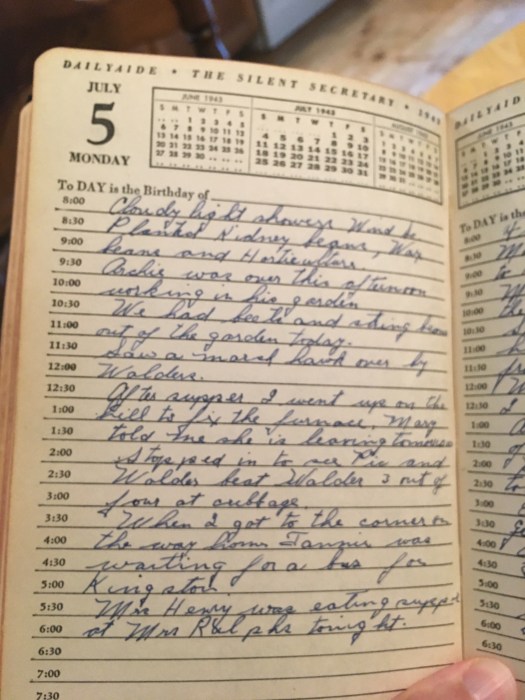 DAILYAIDE • THE SILENT SECRETARY • 1943
JULY
5
MONDAY
JUNE 1943
S M T W T F S
1 2 3 4 5
6 7 8 9 10 11 12
13 14 15 16 17 18 19
20 21 22 23 24 25 26
27 28 29 30
JULY 1943
S M T W T F S
1 2 3
4 5 6 7 8 9 10
11 12 13 14 15 16 17
18 19 20 21 22 23 24
25 26 27 28 29 30 31
AUGUST 1943
To DAY is the Birthday of
8:00 Cloudy light showers Wind
8:30 Planted Kidney beans, Wax
9:00 beans and Horticulture.
9:30 Archie was over this afternoon
10:00 working in his garden
10:30 We had beets and string beans
11:00 out of the garden today.
11:30 Saw a marsh hawk over by
12:00 Walders.
12:30 After supper I went up on the
1:00 hill to fix the furnace, Mary
1:30 told me she is leaving tomorrow
2:00 Stopped in to see Vic and
2:30 Walder beat Walder 3 out of
3:00 four at cribbage.
3:30 When I got to the corner on
4:00 the way home Fannie was
4:30 waiting for a bus for
5:00 Kingston
5:30 Mrs Henry was eating supper
6:00 at Mrs Ralphs tonight.
6:30
7:00
7:30
DAILYAID
JUNE 1943
To DAY is th
8:00
8:30
9:00 to
9:30
10:00 the
10:30
11:00
11:30
12:00
12:30
1:00
1:30 of
2:00
2:30 to
3:00
3:30
4:00
4:30
5:00
5:30
6:00
6:30